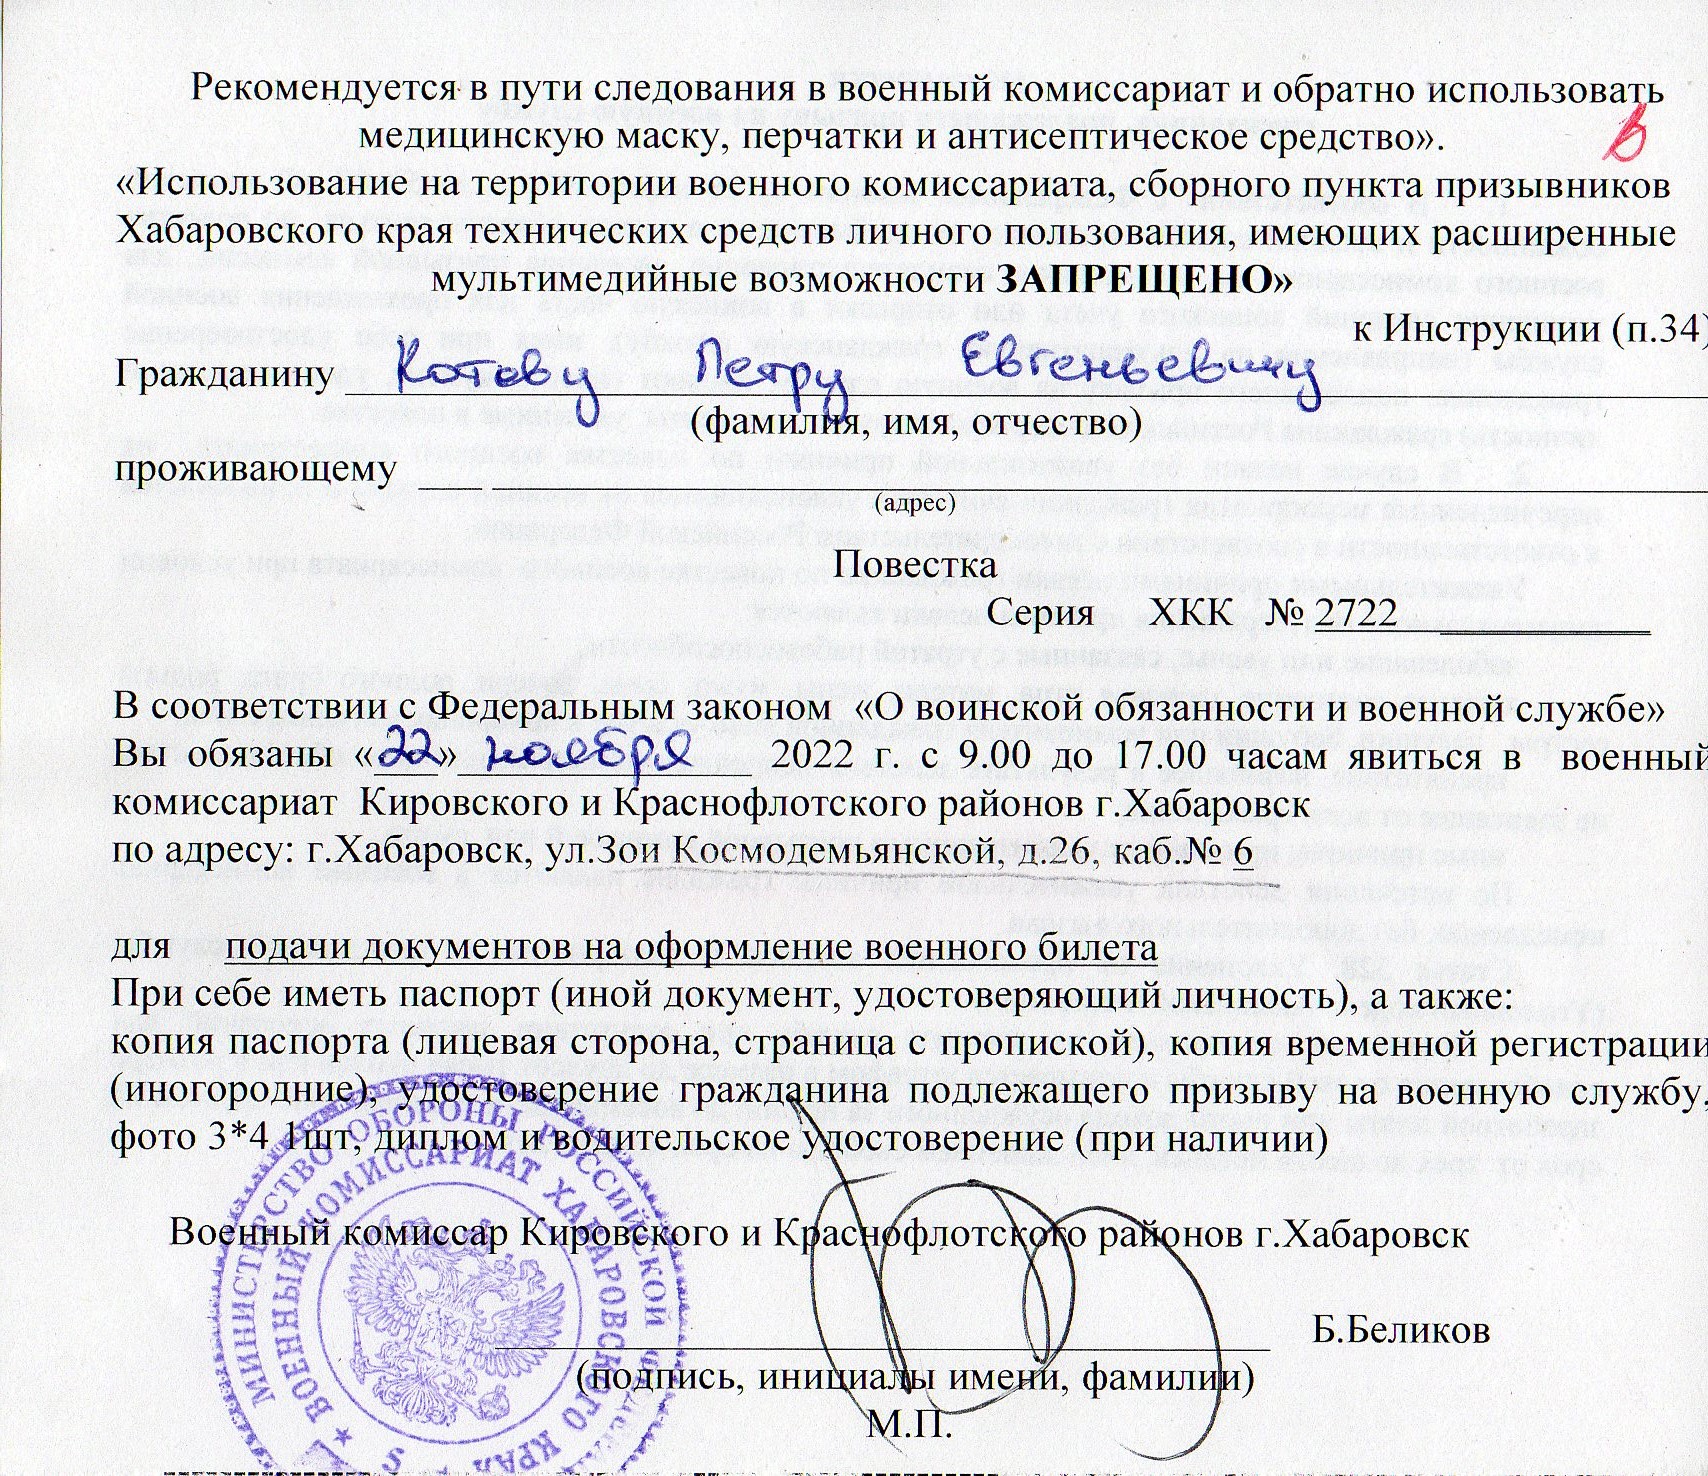 Рекомендуется в пути следования в военный комиссариат и обратно использовать
медицинскую маску, перчатки и антисептическое средство».
В
«Использование на территории военного комиссариата, сборного пункта призывников
Хабаровского края технических средств личного пользования, имеющих расширенные
мультимедийные возможности ЗАПРЕЩЕНО»
к Инструкции (п.34)
Гражданину Котову Петру Евгеньевичу
(фамилия, имя, отчество)
проживающему
(адрес)
Повестка
Серия ХКК № 2722
В соответствии с Федеральным законом «О воинской обязанности и военной службе»
Вы обязаны «22» ноября 2022 г. с 9.00 до 17.00 часам явиться в военный
комиссариат Кировского и Краснофлотского районов г.Хабаровск
по адресу: г.Хабаровск, ул.Зои Космодемьянской, д.26, каб.№ 6
для подачи документов на оформление военного билета
При себе иметь паспорт (иной документ, удостоверяющий личность), а также:
копия паспорта (лицевая сторона, страница с пропиской), копия временной регистрации
(иногородние), удостоверение гражданина подлежащего призыву на военную службу,
фото 3*4 1шт, диплом и водительское удостоверение (при наличии)
Военный комиссар Кировского и Краснофлотского районов г.Хабаровск
Б.Беликов
(подпись, инициалы имени, фамилии)
М.П.
МИНИСТЕРСТВО ОБОРОНЫ РОССИЙСКОЙ
ВОЕННЫЙ КОМИССАРИАТ ХАБАРОВСКОГО КРАЯ